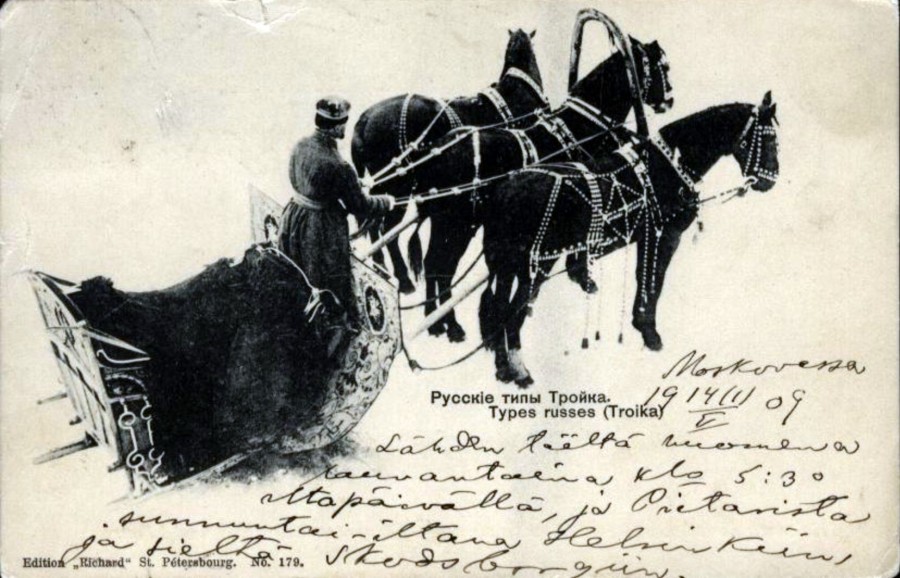 Русскіе типы Тройка.
Types russes (Troika)
Moskovassa
19 14(1)/V 09
Lähden täältä huomena
lauvantaina klo 5:30
iltapäivällä, ja Pietarista
sunnuntai-iltana Helsinkiin,
ja sieltä Skodsborgiin.
Edition „Richard“ St. Pétersbourg. No. 179.